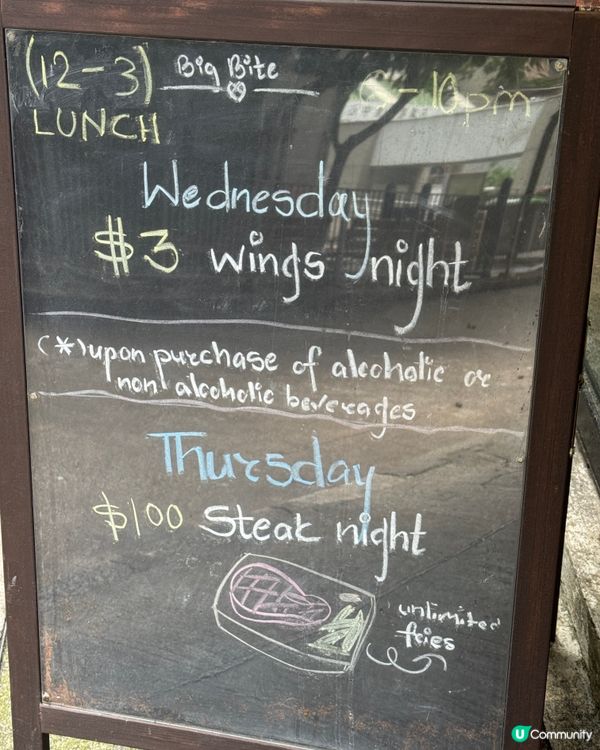 (12-3) Big Bite 6-10pm
LUNCH
Wednesday
$3 wings night
(*) upon purchase of alcoholic or
non alcoholic beverages
Thursday
$100 Steak night
unlimited
fries
U Community